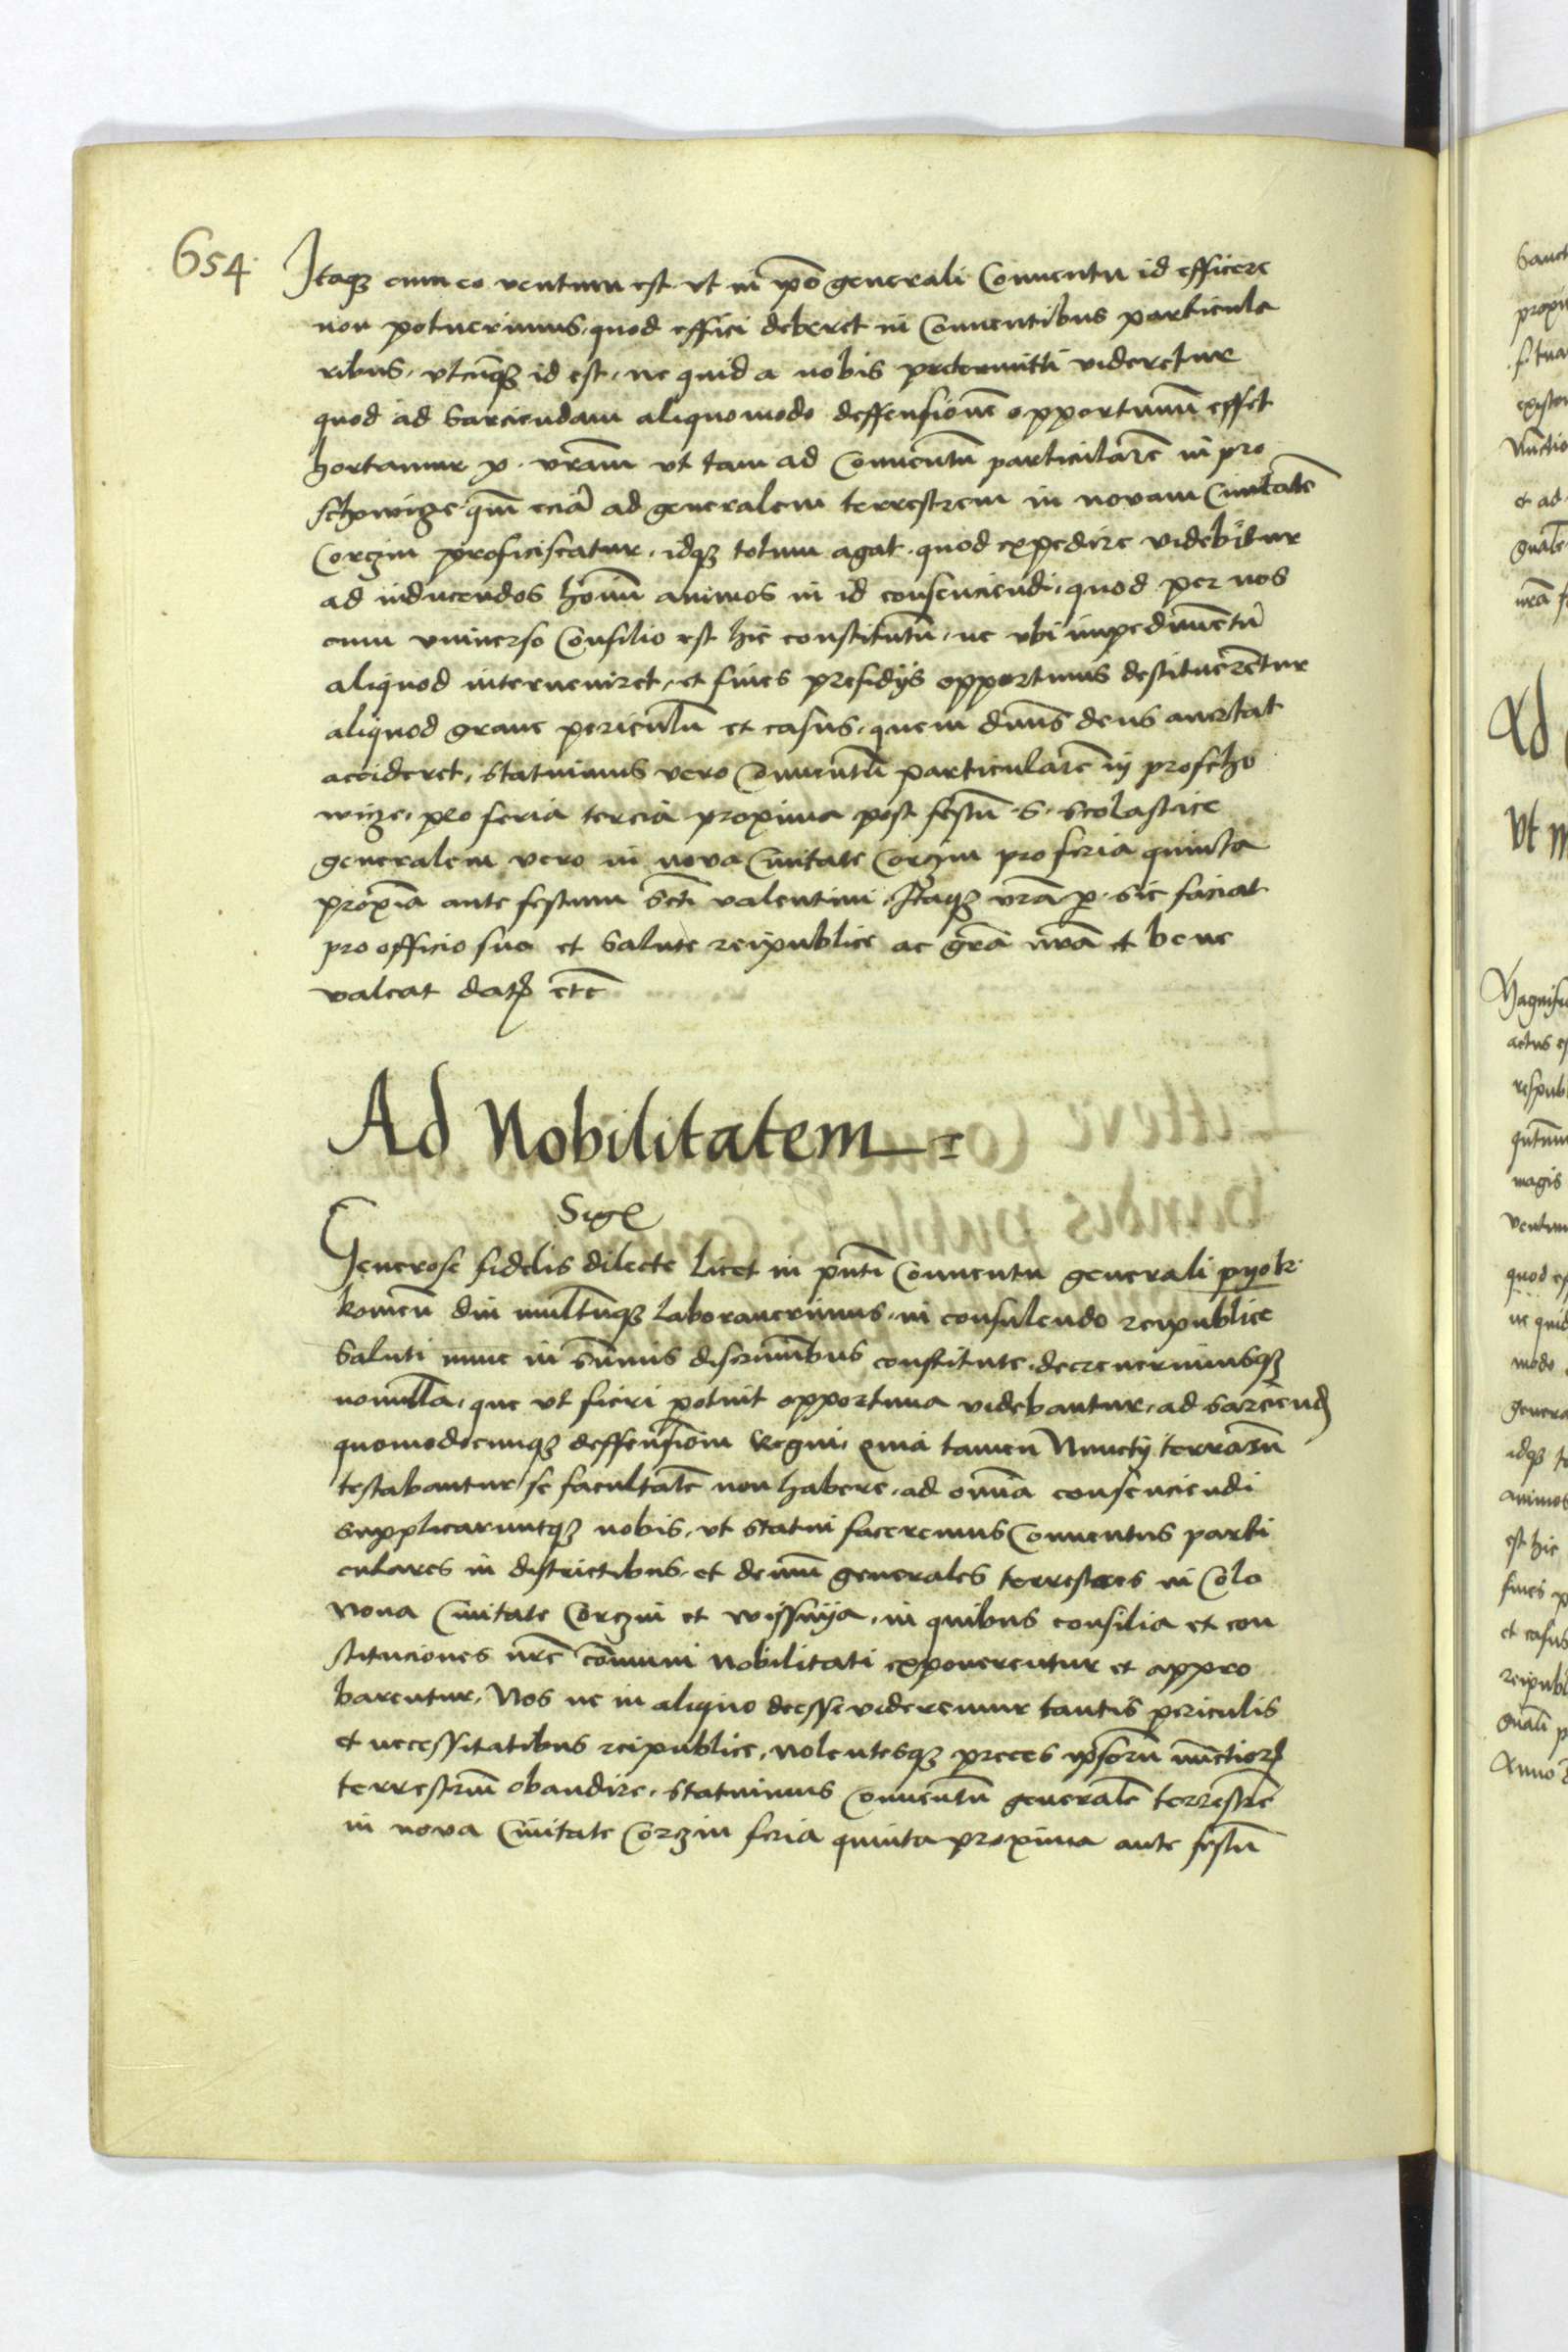 654
Itaqꝫ cum eo ventum est vt in ip̄o generali Conuentu id efficere
non potuerimus, quod effici deberet in Conuentibus particula
ribus, vtcūqꝫ id est, ne quid a nobis pretermitti videretur
quod ad sarciendam aliquomodo deffensionē opportunū esset
hortamur p. vrām vt tam ad Conuentū particularē in pro
schowize qm̄ eciā ad generalem terrestrem in novam Ciuitatē
Corczin proficiscatur, idqꝫ totum agat quod expedire videbitur
ad inducendos hoīm animos in id consenciendi, quod per nos
cum vniuerso Consilio est hic constitutū, ne vbi impedimentū
aliquod interueniret, et fines presidijs opportunis destituerētur
aliquod graue periculū et casus, quem dm̄s deus auertat
accideret, statuimus vero Conuentū particularē in proscho
wize, pro feria tercia proxima post festū s. scolastice
generalem vero in nova Ciuitate Corczin pro feria quinta
proxīa ante festum Scti valentini. Itaqꝫ vrā p. sic faciat
pro officio suo et salute reipublice ac grā nrā et bene
valeat datꝭ etc̄
Ad Nobilitatem
Sigꝭ
Generose fidelis dilecte Licet in pn̄ti Conuentu generali pyotr
komeñ diu multūqꝫ laborauerimus, in consulendo reipublice
saluti nunc in sūmis discriminibus constitute, decreuerimusqꝫ
nonnulla, que vt fieri potuit opportuna videbantur, ad sarciendꝭ
quomodocunqꝫ deffensionem Regni, quia tamen Nunctij terrarū
testabantur se facultatē non habere, ad omīa consenciendi
supplicaruntqꝫ nobis, vt statui faceremus Conuentus parti
culares in districtibus, et demū generales terrestres in Colo
Nova Ciuitate Corczin et wissnija, in quibus consilia et con
stituciones nrē cōmuni Nobilitati exponerentur et appro
barentur, Nos ne in aliquo deesse videremur tantis periculis
et necessitatibus reipublice, nolentesqꝫ preces ipsorū nūctiorꝭ
terrestriū obaudire, statuimus Conuentū generalē terrestrē
in nova Ciuitate Corczin feria quinta proxima ante festū